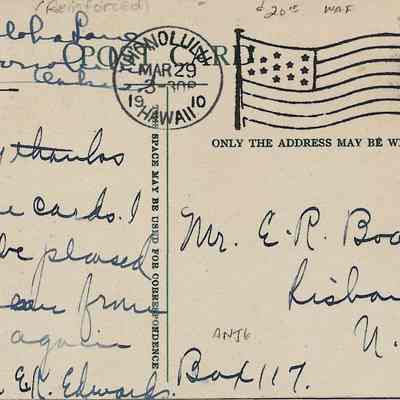 (Reinforced)
$20.5 WAF
Aloha Land
POST CARD
HONOLULU
MAR 29
3-30P
19 10
HAWAII
ONLY THE ADDRESS MAY BE W
SPACE MAY BE USED FOR CORRESPONDENCE
y thanks
e cards. I
be pleased
ear from
again
E.R. Edwards.
Mr. E. R. Boa
Lisbon
N.
ANT6
Box 117.